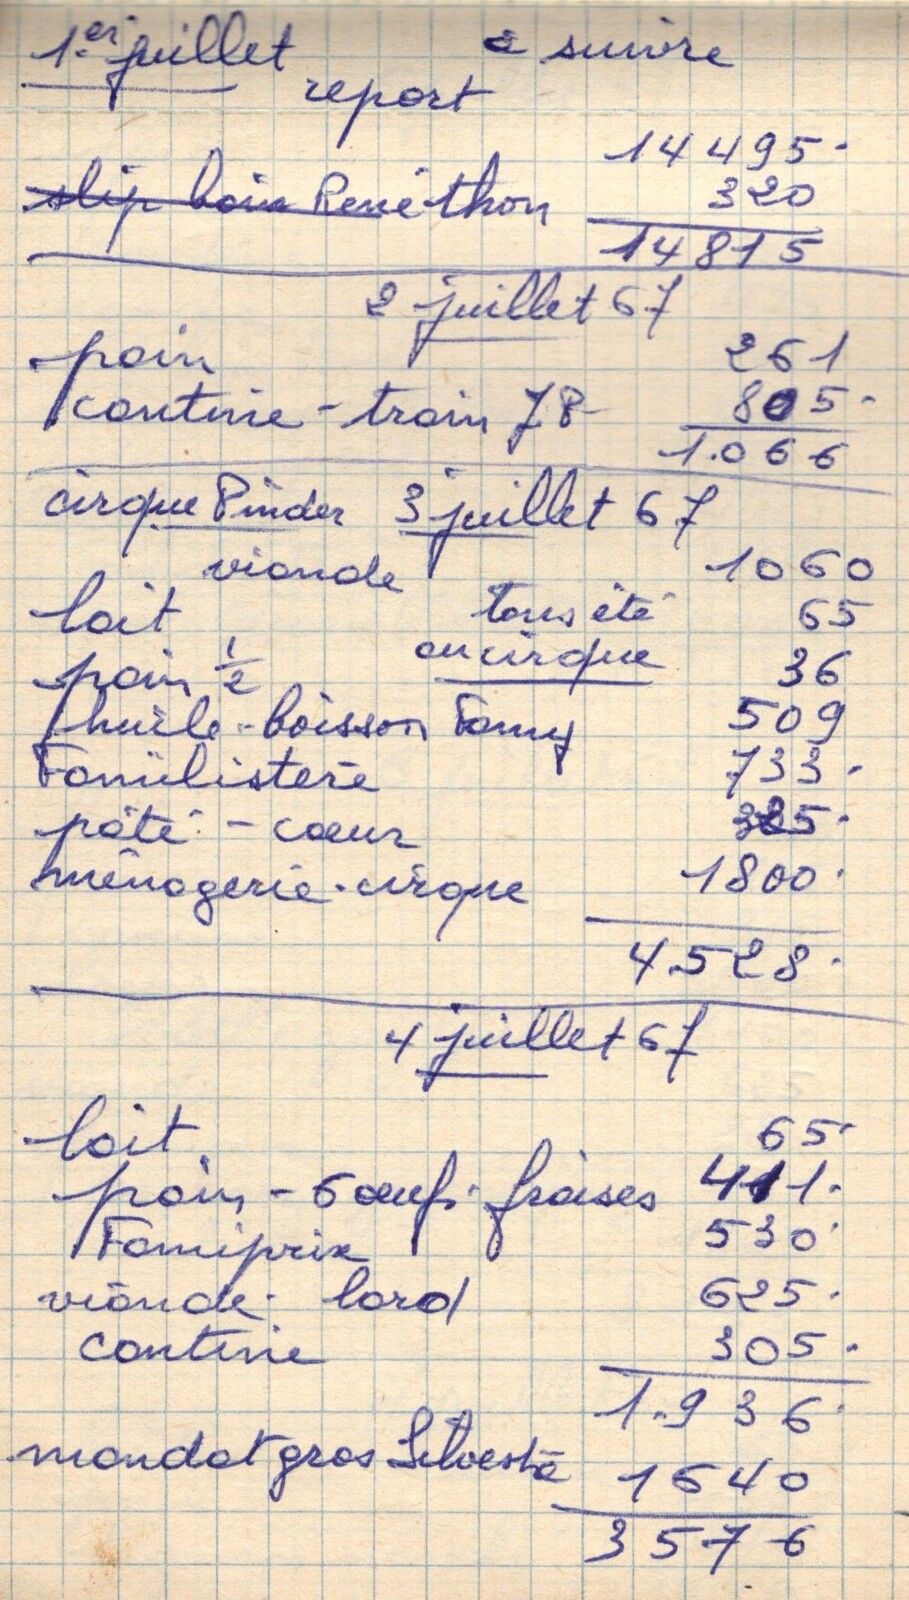 1.er juillet à suivre
report
14495.
slip bain René thon 320
14815
2 juillet 67
pain 261
cantine - train JP 805.
1.066
cirque Pinder 3 juillet 67
viande 1060
lait tous été 65
pain 1/2 au cirque 36
huile - boisson Fanny 509
Familistère 733.
pâté - cœur 325.
ménagerie. cirque 1800.
4.528.
4 juillet 67
lait 65.
pain - 6 œufs. fraises 411.
Famiprix 530.
viande. lard 625.
cantine 305.
1.936.
mandat gros 1640
3576